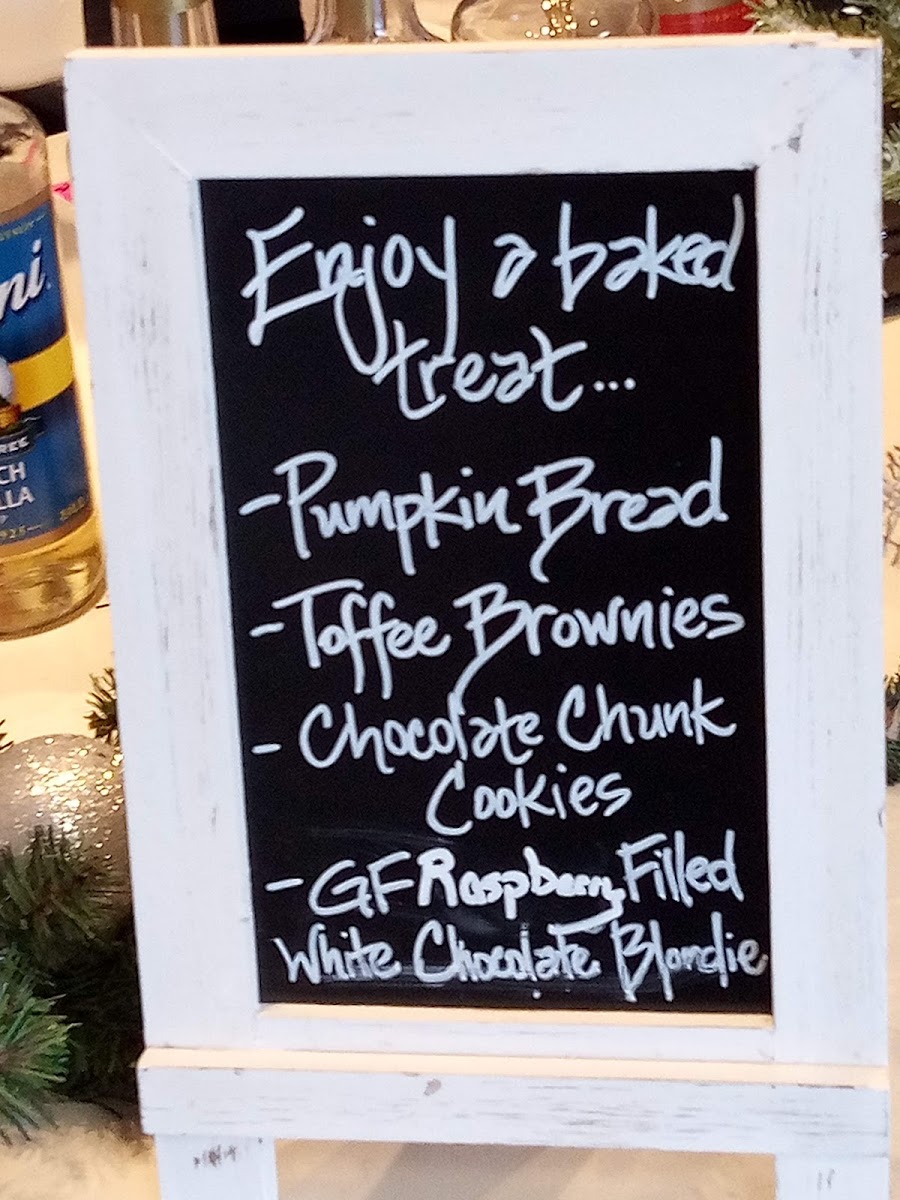 Enjoy a baked
treat...
- Pumpkin Bread
- Toffee Brownies
- Chocolate Chunk
Cookies
- GF Raspberry Filled
White Chocolate Blondie
ni
REE
CH
LLA